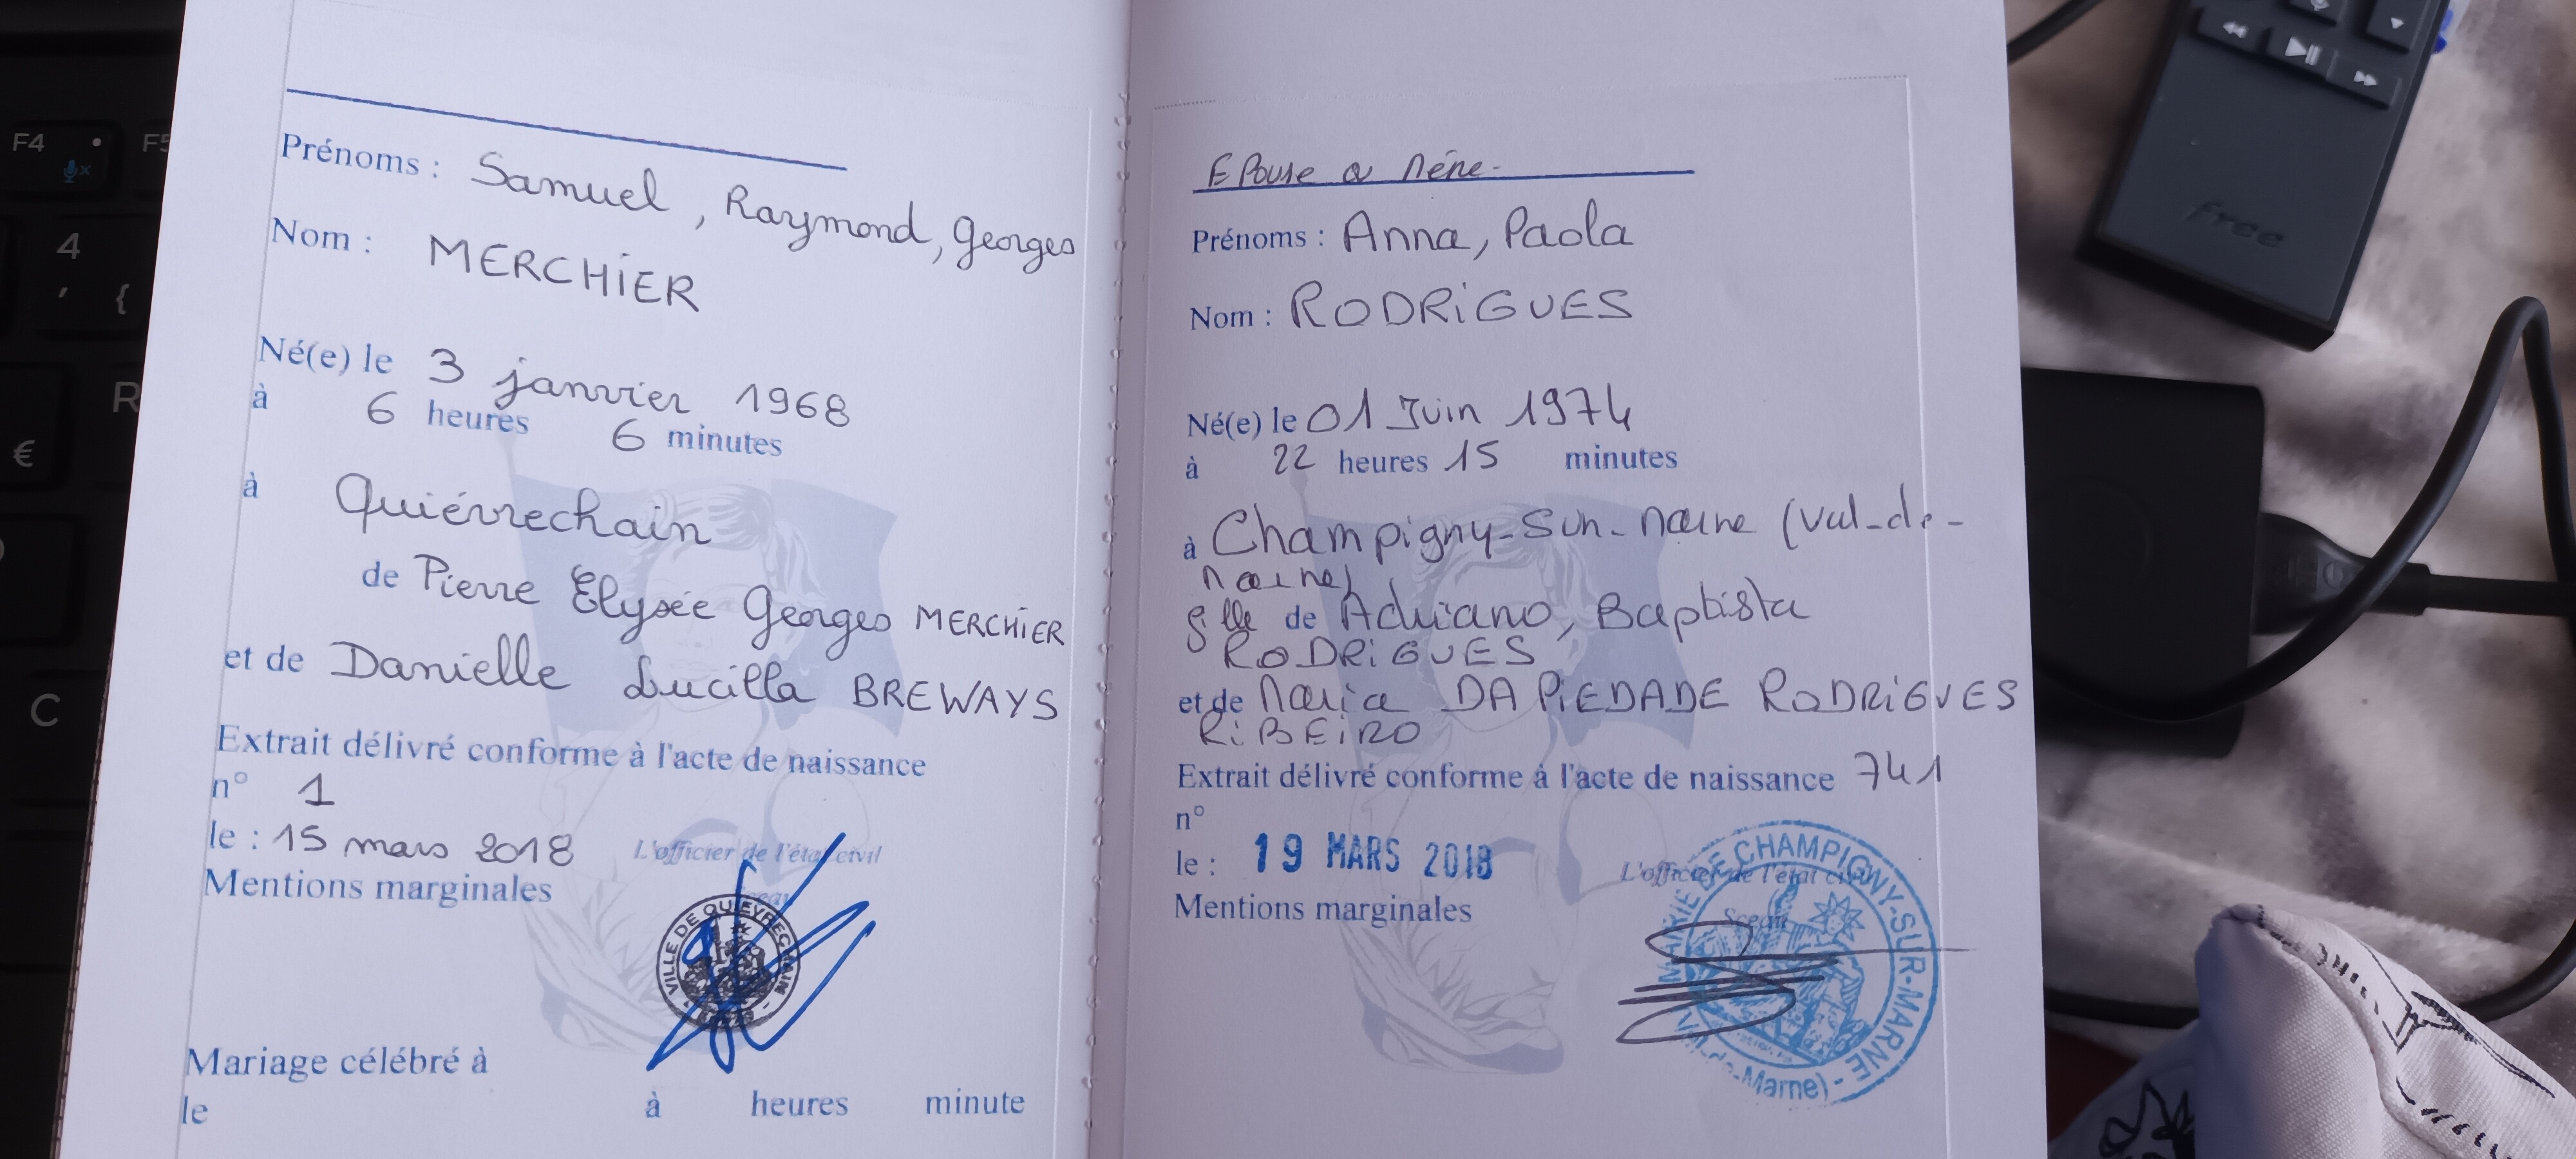 Prénoms : Samuel, Raymond, Georges
Nom : MERCHIER
Né(e) le 3 janvier 1968
à 6 heures 6 minutes
à Quiévrechain
de Pierre Elysée Georges MERCHIER
et de Danielle Lucilla BREWAYS
Extrait délivré conforme à l'acte de naissance
n° 1
le : 15 mars 2018
L'officier de l'état civil
Mentions marginales
VILLE DE QUIEVRECHAIN
Mariage célébré à
le à heures minute
Epouse ou Mère.
Prénoms : Anna, Paola
Nom : RODRIGUES
Né(e) le 01 Juin 1974
à 22 heures 15 minutes
à Champigny-sur-Marne (Val-de-
Marne)
fille de Adriano, Baptista
RODRIGUES
et de Maria DA PIEDADE RODRIGUES
RIBEIRO
Extrait délivré conforme à l'acte de naissance 741
n°
le : 19 MARS 2018
L'officier de l'état civil
Sceau
Mentions marginales
MAIRIE DE CHAMPIGNY-SUR-MARNE
(Val-de-Marne)
F4
F5
4
' {
R
€
C
free